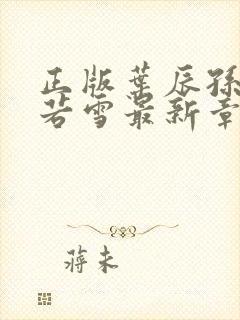 正版叶辰孙
若雪最新章
蒋未